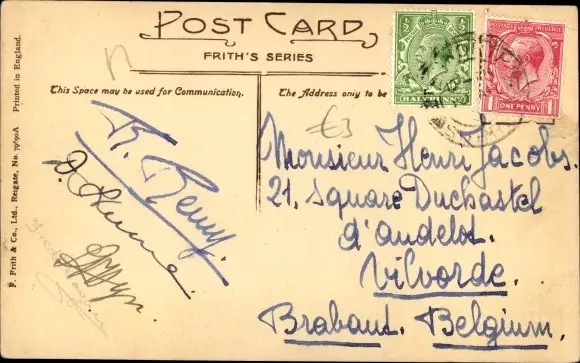 POST CARD
FRITH'S SERIES
This Space may be used for Communication.
The Address only to be
F. Frith & Co., Ltd., Reigate, No. 79490A Printed in England.
HALFPENNY
1 ONE PENNY 1
£3
Monsieur Henri Jacobs.
21, Square Duchastel
d'andelot.
Vilvorde.
Brabant. Belgium.